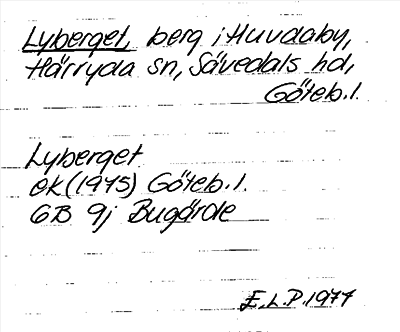 Lyberget, berg i Huvdaby,
Härryda sn, Sävedals hd,
Göteb. l.
Lyberget
ek (1975) Göteb. l.
6B 9j Bugärde
E.L.P. 1977